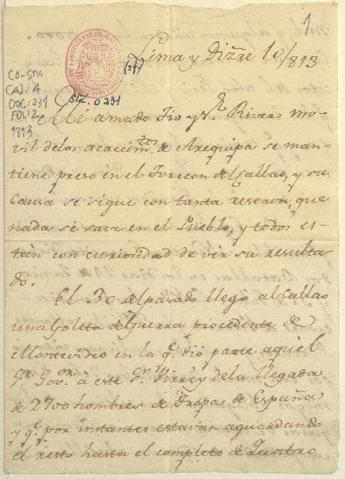 1
Lima y Dizre 10/813
CO-SM
CAJ. 4
DOC. 231
FOL. 2
1813
Mi amado Tio y Sr. Rivero mo-
vil de los acaecimtos de Arequipa se man-
tiene preso en el Torreon del Callao, y su
causa se sigue con tanta reserva, que
nada se save en el Pueblo, y todos es-
tan con curiosidad de vir su resulta-
do.
El 30 del pasado llegó al Callao
una Goleta de Guerra procedente de
Montevideo en la q. dio parte aquel
Sr. Gov.or a este Sr. Virrey de la llegada
de 2700 hombres de Tropas de España
y q. por instantes estavan aguardando
el resto hasta el completo de Quatro